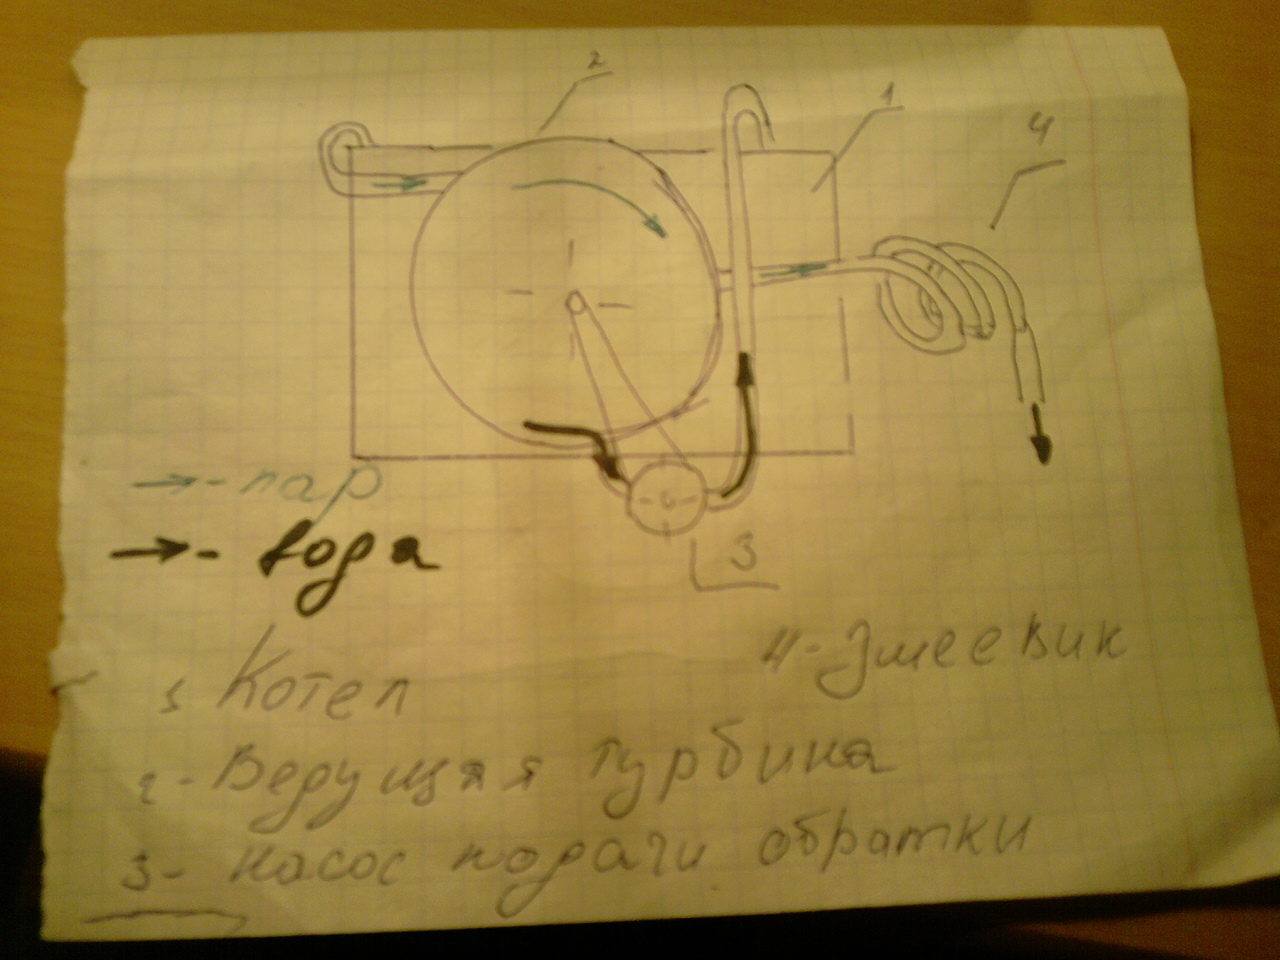 2
1
4
3
→ - пар
→ - вода
1 Котел
4 - Змеевик
2 - Ведущая турбина
3 - насос подачи обратки